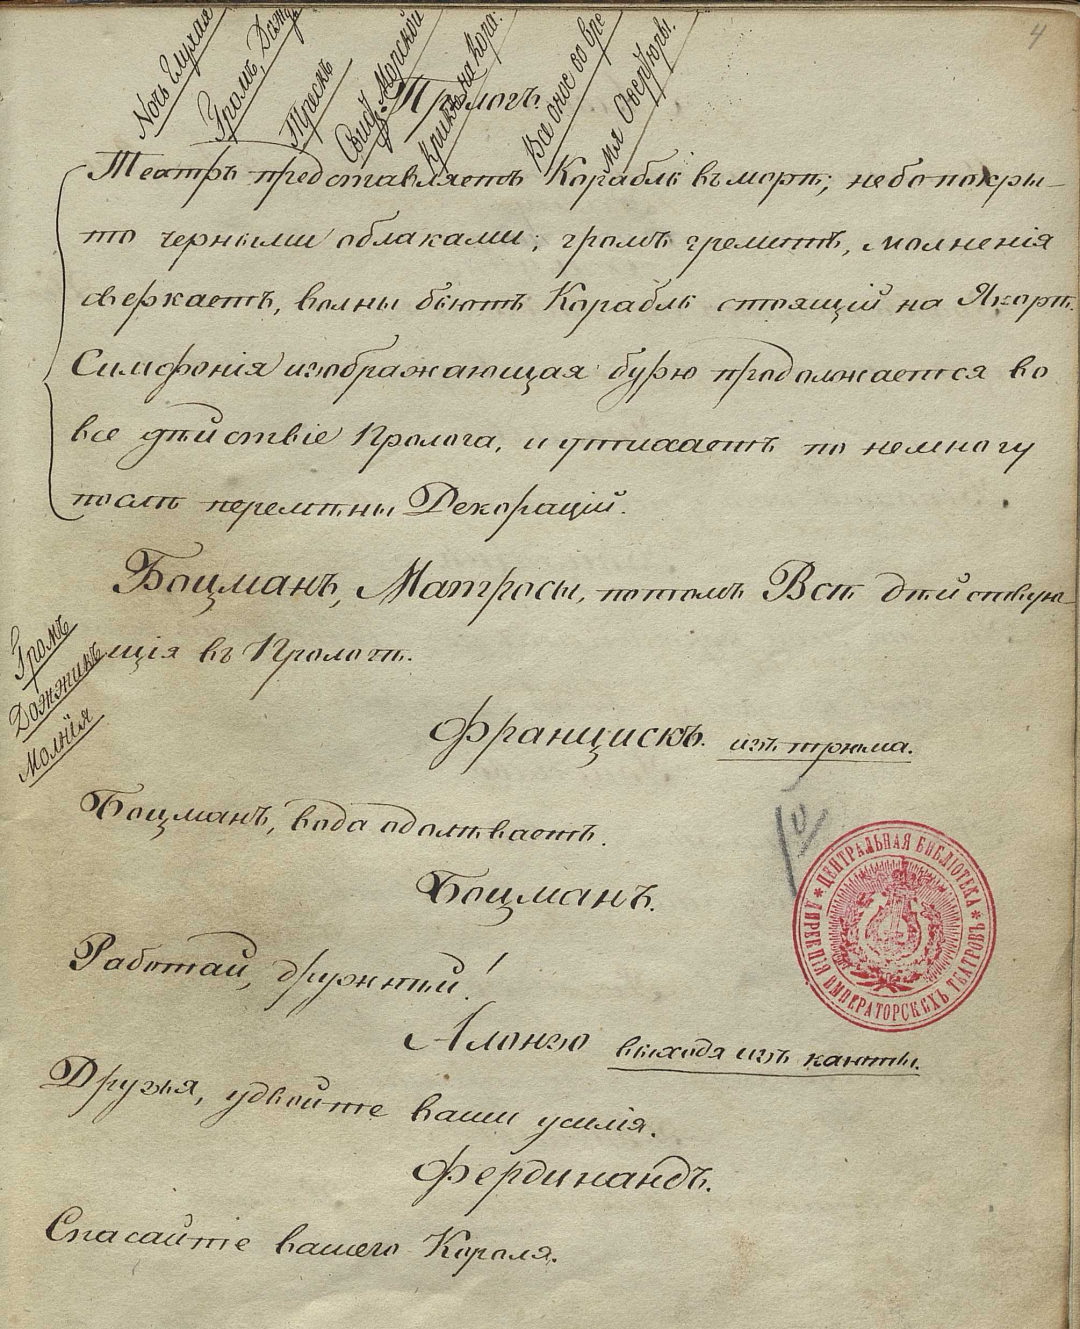 4
Ночь Глухая
Громъ, Дождь
Трескъ
Свист. Морской
Крикъ на Кора:
Все оное во вре
мя Овертюры.
Прологъ.
Театръ представляетъ Корабль въ морѣ; небо покры-
то черными облаками; громъ гремитъ, молненія
сверкаетъ, волны бьютъ Корабль стоящій на Якорѣ.
Симфонія изображающая бурю продолжается во
все дѣйствіе Пролога, и утихаетъ по немногу
послѣ перемѣны Декорацій.
Боцманъ, Матросы, потомъ Всѣ дѣйствую-
щія въ Прологѣ.
Громъ
Дожжикъ
Молнія
Францискъ. изъ трюма.
Боцманъ, вода одолѣваетъ.
Боцманъ.
Работай, дружнѣй!
Алонзо выходя изъ каюты.
Друзья, удвойте ваши усилія.
Фердинандъ.
Спасайте вашего Короля.
ЦЕНТРАЛЬНАЯ БИБЛІОТЕКА
ДИРЕКЦІИ ИМПЕРАТОРСКХЪ ТЕАТРОВЪ